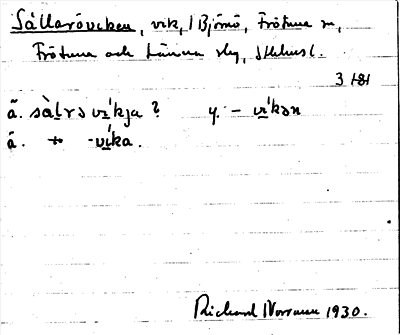 Sållaröviken, vik, i Björnö, Frötuna sn,
Frötuna och Länna skg, Sthlms l.
3 181
ä. sàlrə víkja ? y. - víkən
á. + -víka.
Richard Norrman 1930.